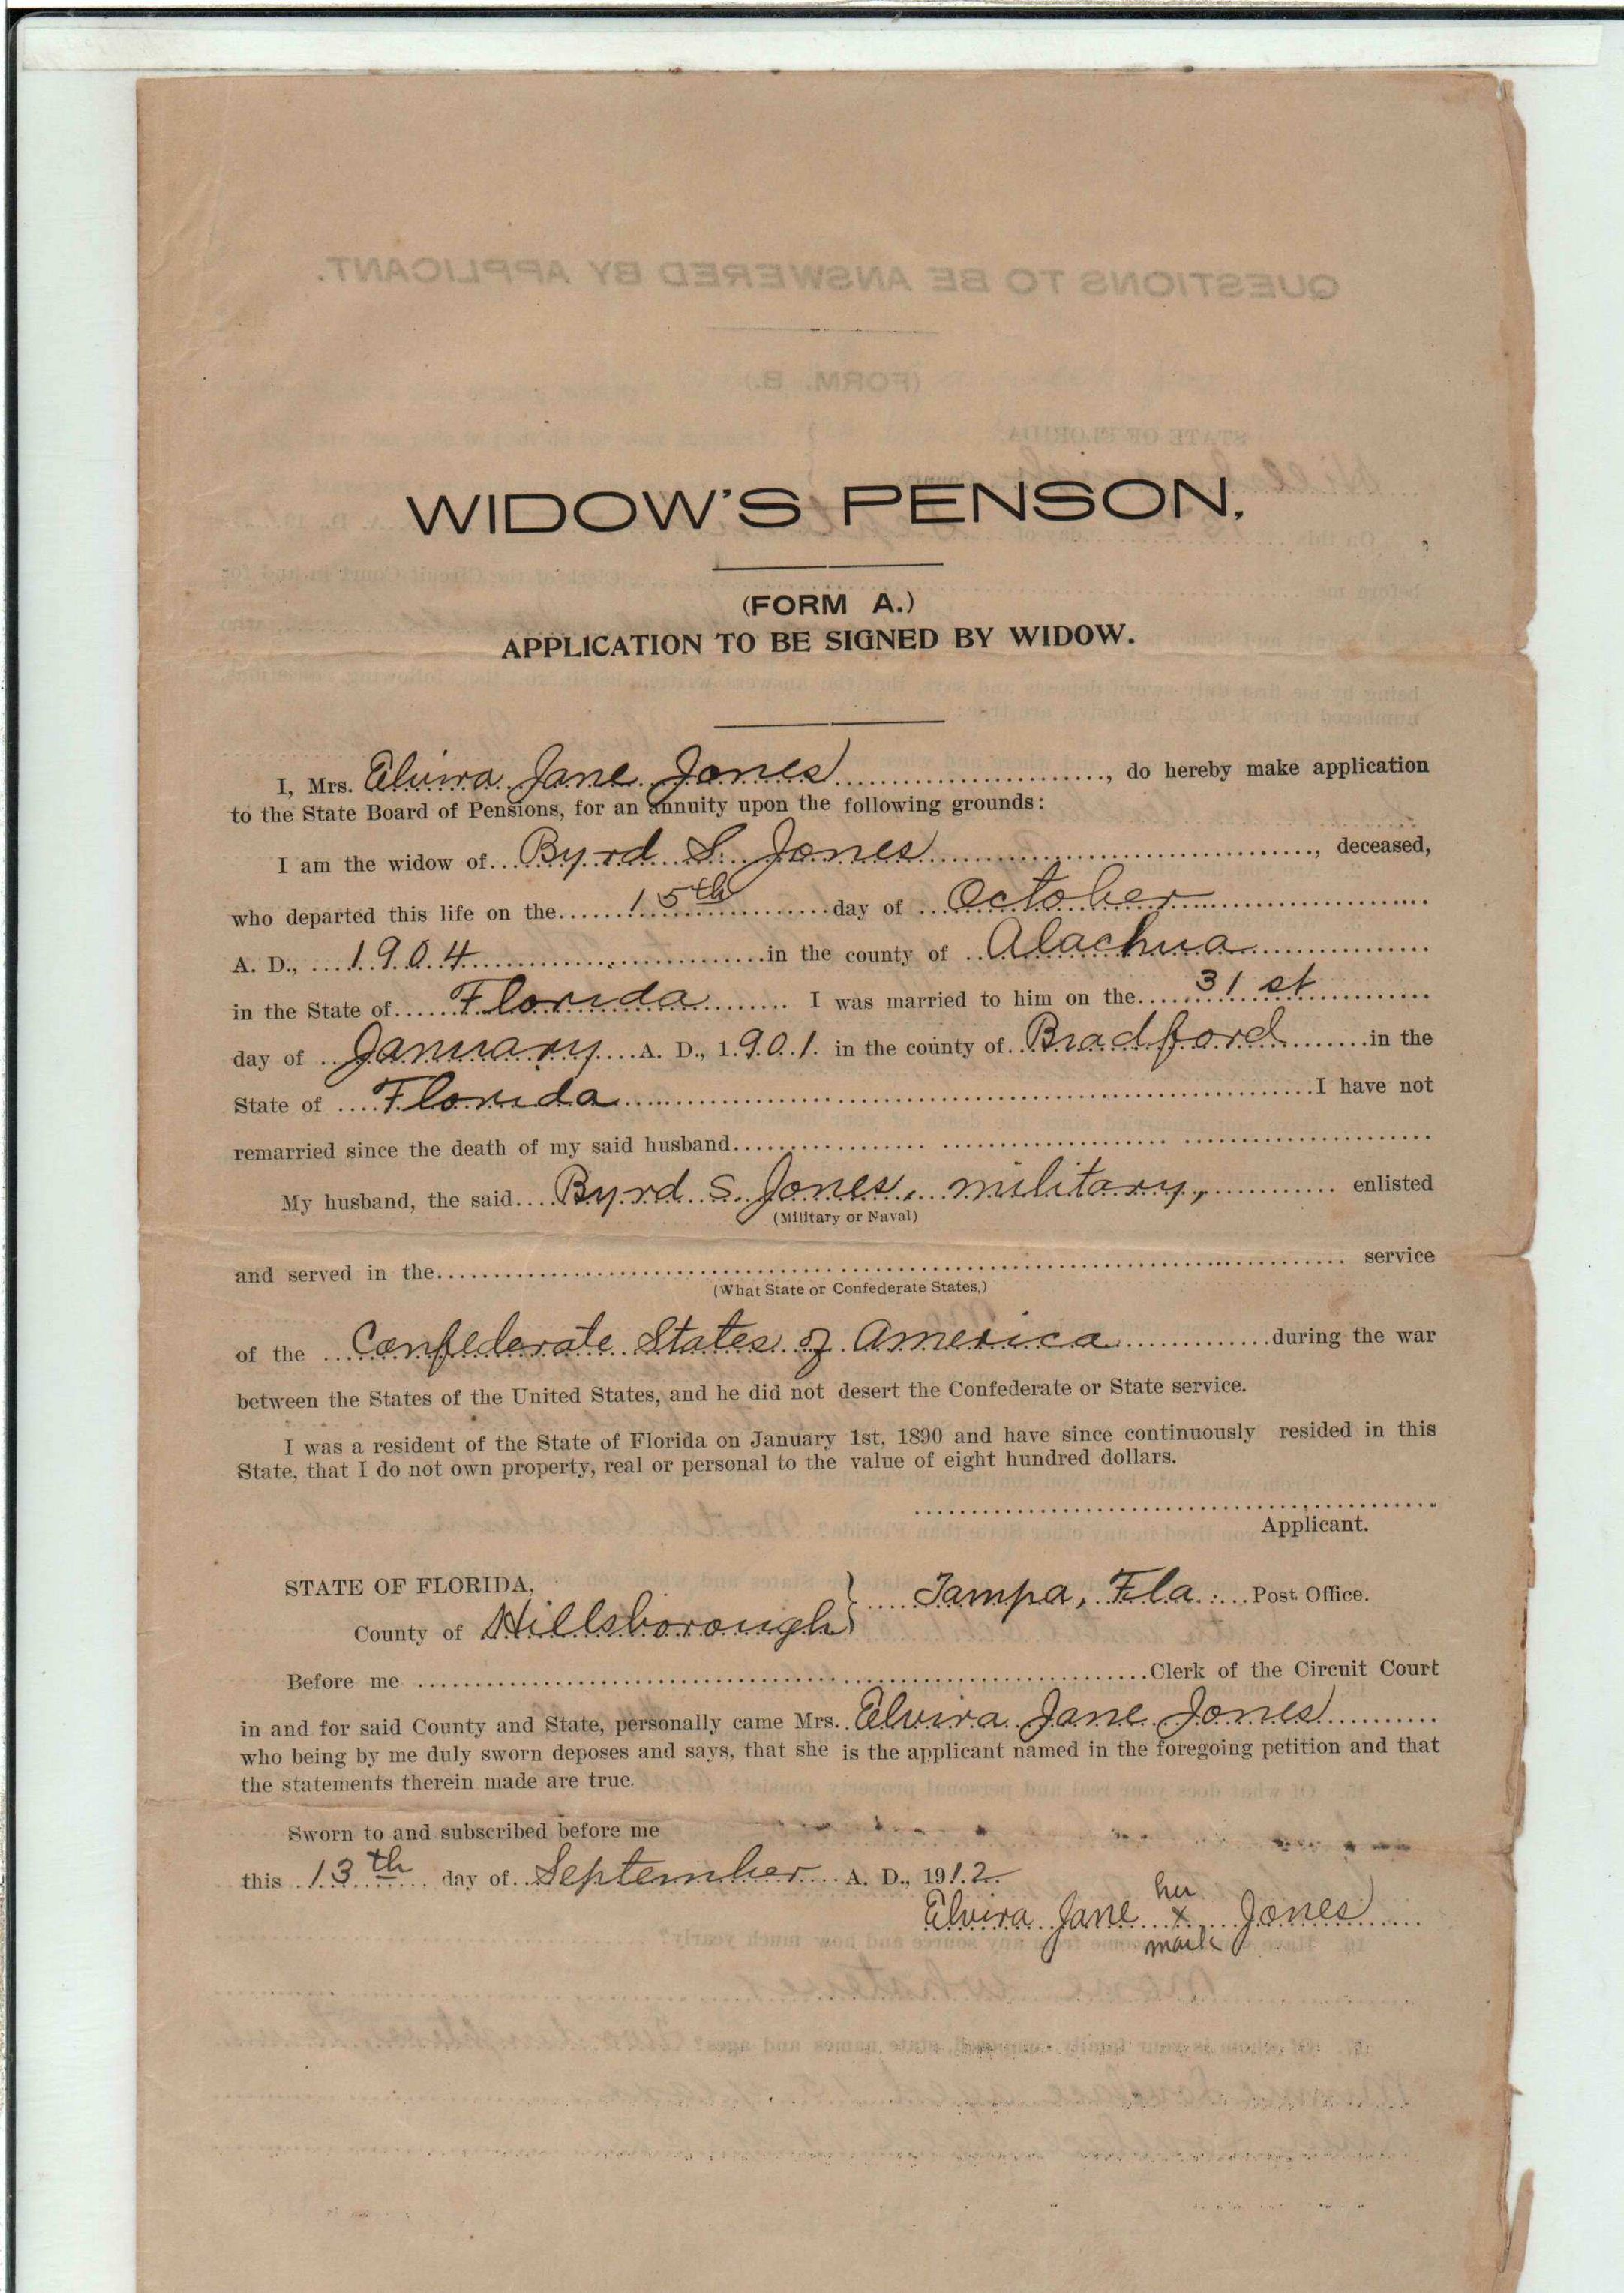 WIDOW'S PENSON,
(FORM A.)
APPLICATION TO BE SIGNED BY WIDOW.
I, Mrs. Elvira Jane Jones, do hereby make application
to the State Board of Pensions, for an annuity upon the following grounds:
I am the widow of Byrd S. Jones, deceased,
who departed this life on the 15th day of October
A. D., 1904 in the county of Alachua
in the State of Florida I was married to him on the 31st
day of January A. D., 1901 in the county of Bradford in the
State of Florida I have not
remarried since the death of my said husband
My husband, the said Byrd S. Jones, military, enlisted
(Military or Naval)
and served in the service
(What State or Confederate States.)
of the Confederate States of America during the war
between the States of the United States, and he did not desert the Confederate or State service.
I was a resident of the State of Florida on January 1st, 1890 and have since continuously resided in this
State, that I do not own property, real or personal to the value of eight hundred dollars.
Applicant.
STATE OF FLORIDA, } Tampa, Fla. Post Office.
County of Hillsborough
Before me Clerk of the Circuit Court
in and for said County and State, personally came Mrs. Elvira Jane Jones
who being by me duly sworn deposes and says, that she is the applicant named in the foregoing petition and that
the statements therein made are true.
Sworn to and subscribed before me
this 13th day of September A. D., 1912
her
Elvira Jane x Jones
mark